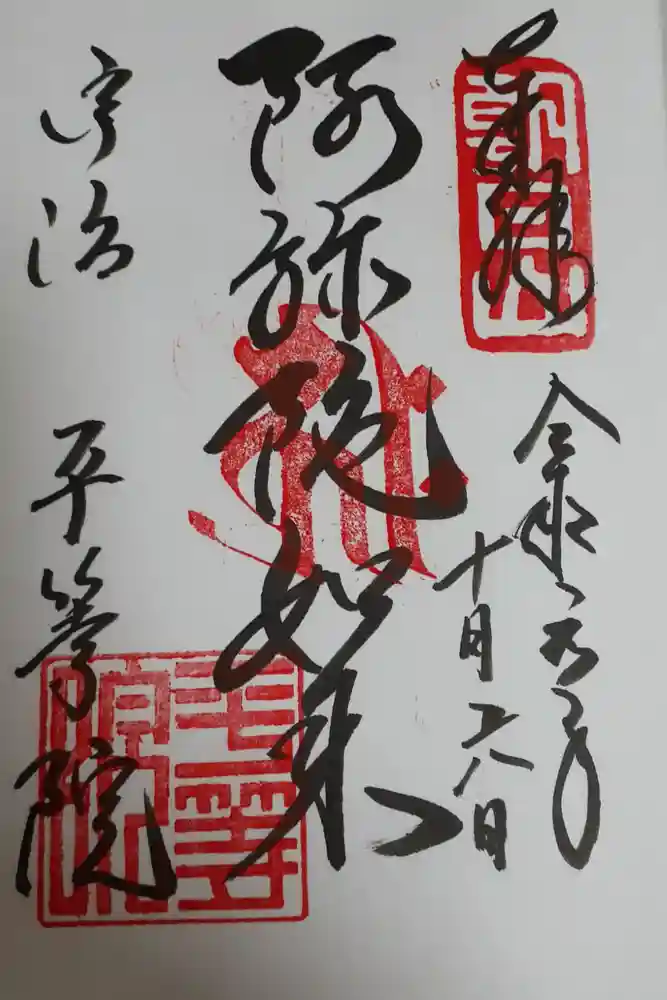 奉拝
令和元年
十月二八日
阿弥陀如来
宇治 平等院
平等院